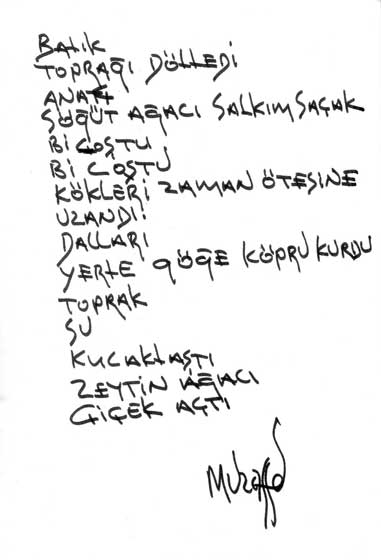 BALIK
TOPRAĞI DÖLLEDİ
ANAÇ
SÖĞÜT AĞACI SALKIMSAÇAK
Bİ COŞTU
Bİ COŞTU
KÖKLERİ ZAMAN ÖTESİNE
UZANDI!
DALLARI
YERLE GÖĞE KÖPRÜ KURDU
TOPRAK
SU
KUCAKLAŞTI
ZEYTİN AĞACI
ÇİÇEK AÇTI